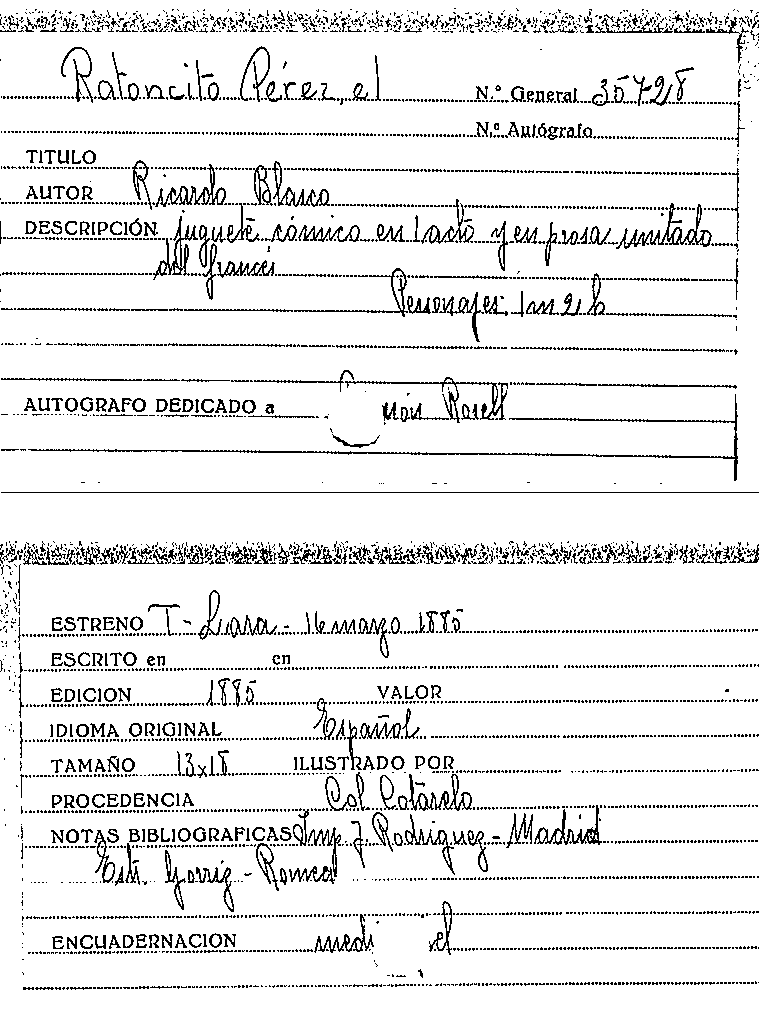 Ratoncito Pérez, el
N.º General 35728
N.º Autógrafo
TITULO
AUTOR Ricardo Blasco
DESCRIPCIÓN juguete cómico en 1 acto y en prosa imitado
del francés
Personajes: 1m 2 h
AUTOGRAFO DEDICADO a Rosell
ESTRENO T- Lara - 16 marzo 1885
ESCRITO en en
EDICION 1885 VALOR
IDIOMA ORIGINAL Español
TAMAÑO 13x18 ILUSTRADO POR
PROCEDENCIA Col Cotarelo
NOTAS BIBLIOGRAFICAS Imp. J. Rodriguez - Madrid
ENCUADERNACION